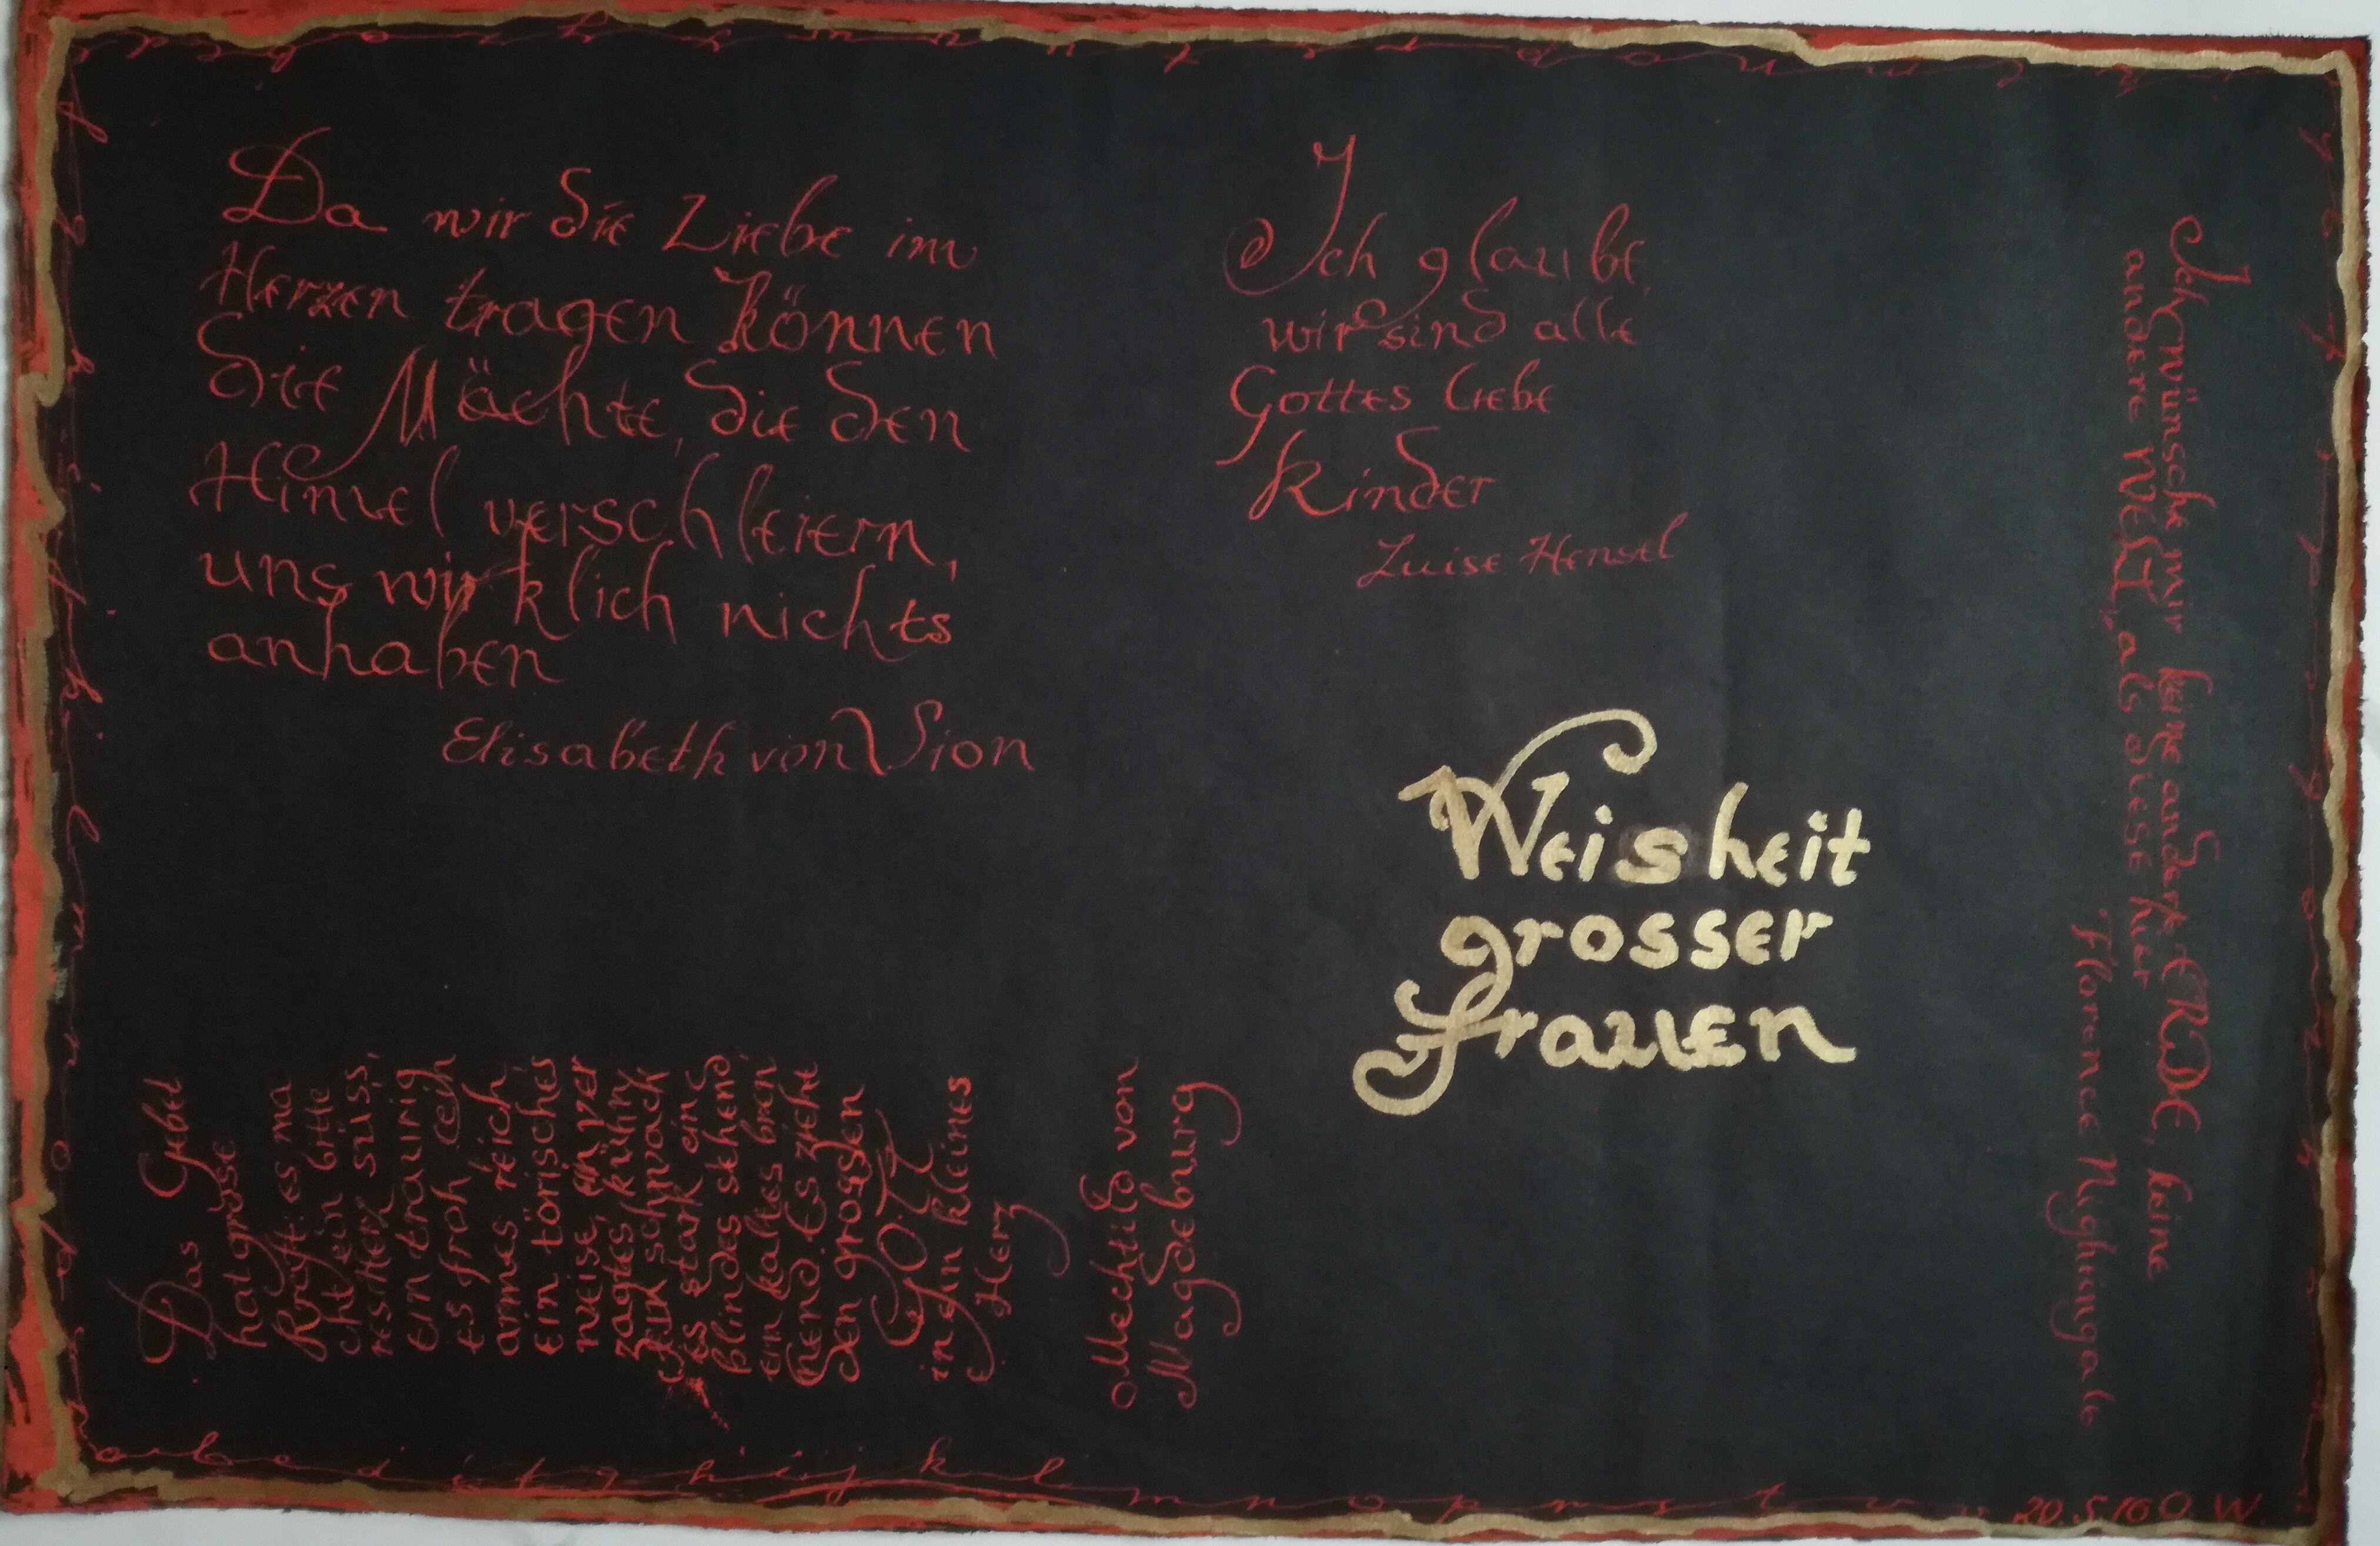 Da wir die Liebe im
Herzen tragen können
die Mächte, die den
Himel verschleiern,
uns wirklich nichts
anhaben
Elisabeth von Vion
Ich glaube,
wir sind alle
Gottes liebe
Kinder
Luise Hensel
Weisheit
grosser
Frauen
Ich wünsche mir keine andere ERDE, keine
andere WELT, als diese hier
Florence Nightingale
Das Gebet
hat grosse
Kraft: es ma
cht ein bitte
res Herz süss,
ein traurig
es froh ein
armes reich,
ein törisches
weise, ein ver
zagtes kühn,
ein schwach
es stark ein
blindes sehend
ein kaltes bren
nend. Es zieht
den grossen
GOTT
in ein kleines
Herz
Mechtild von
Magdeburg
a b c d e f g h i j k l m n o p r s t u
20.5.16 O. W.